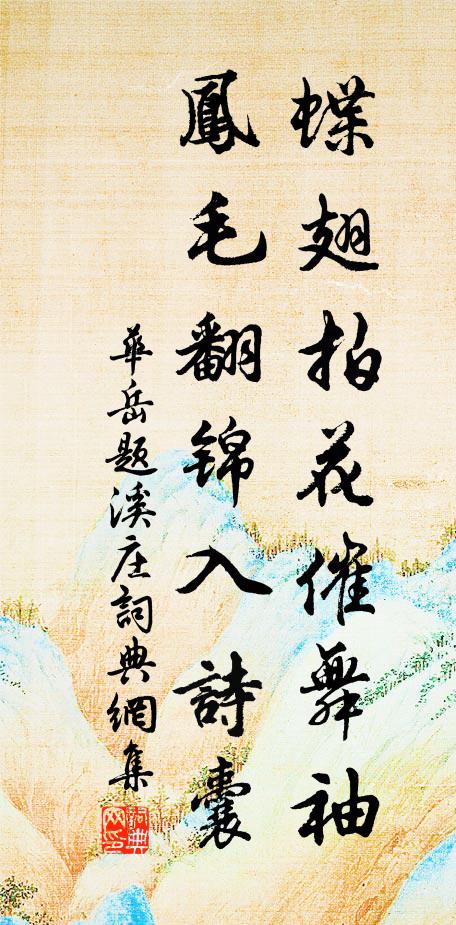 蝶翅拍花催舞袖
鳳毛翻錦入詩囊
華岳題溪庄詞典網集
詞典網印